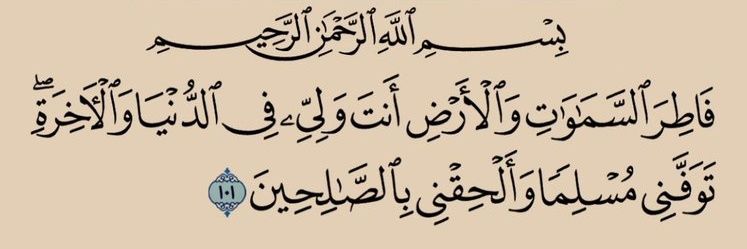 بِسْمِ ٱللَّهِ ٱلرَّحْمَٰنِ ٱلرَّحِيمِ
فَاطِرَ ٱلسَّمَٰوَٰتِ وَٱلْأَرْضِ أَنتَ وَلِيِّۦ فِى ٱلدُّنْيَا وَٱلْأَخِرَةِۖ
تَوَفَّنِى مُسْلِمًا وَأَلْحِقْنِى بِٱلصَّٰلِحِينَ ١٠١